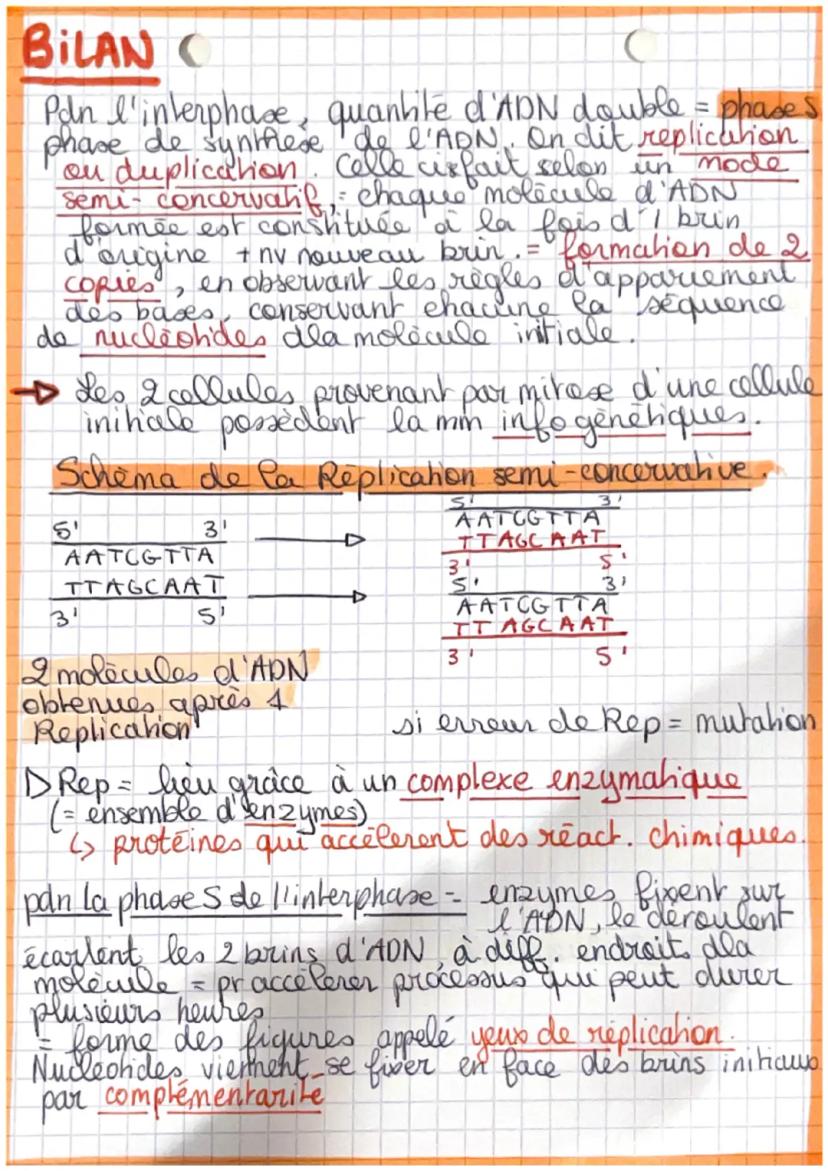 BiLAN
Pdn l'interphase, quantité d'ADN double = phase S
phase de synthèse de l'ADN. On dit replication
ou duplication. Celle ci s fait selon un mode
semi-concervatif, = chaque molécule d'ADN
formée est constituée à la fois d'1 brin
d'origine + nv nouveau brin. = formation de 2
copies, en observant les règles d'appariement
des bases, conservant chacune la séquence
de nucléotides dla molécule initiale.
→ Les 2 cellules provenant par mitose d'une cellule
initiale possèdent la mm info génétiques.
Schéma de la Réplication semi-concervative.
5' 3'
AATCGTTA
TTAGCAAT
3' 5'
5' 3'
AATCGTTA
TTAGCAAT
3' 5'
5' 3'
AATCGTTA
TTAGCAAT
3' 5'
2 molécules d'ADN
obtenues après 1
Replication
si erreur de Rep = mutation
▷ Rep = lieu grâce à un complexe enzymatique
(= ensemble d'enzymes)
↳ protéines qui accélerent des réact. chimiques.
pdn la phase S de l'interphase = enzymes fixent sur
l'ADN, le déroulent
écartent les 2 brins d'ADN à diff. endroits dla
molécule = pr accélerer processus qui peut durer
plusieurs heures
= forme des figures appelé yeux de réplication.
Nucléotides viennent se fixer en face des brins initiaux
par complémentarité